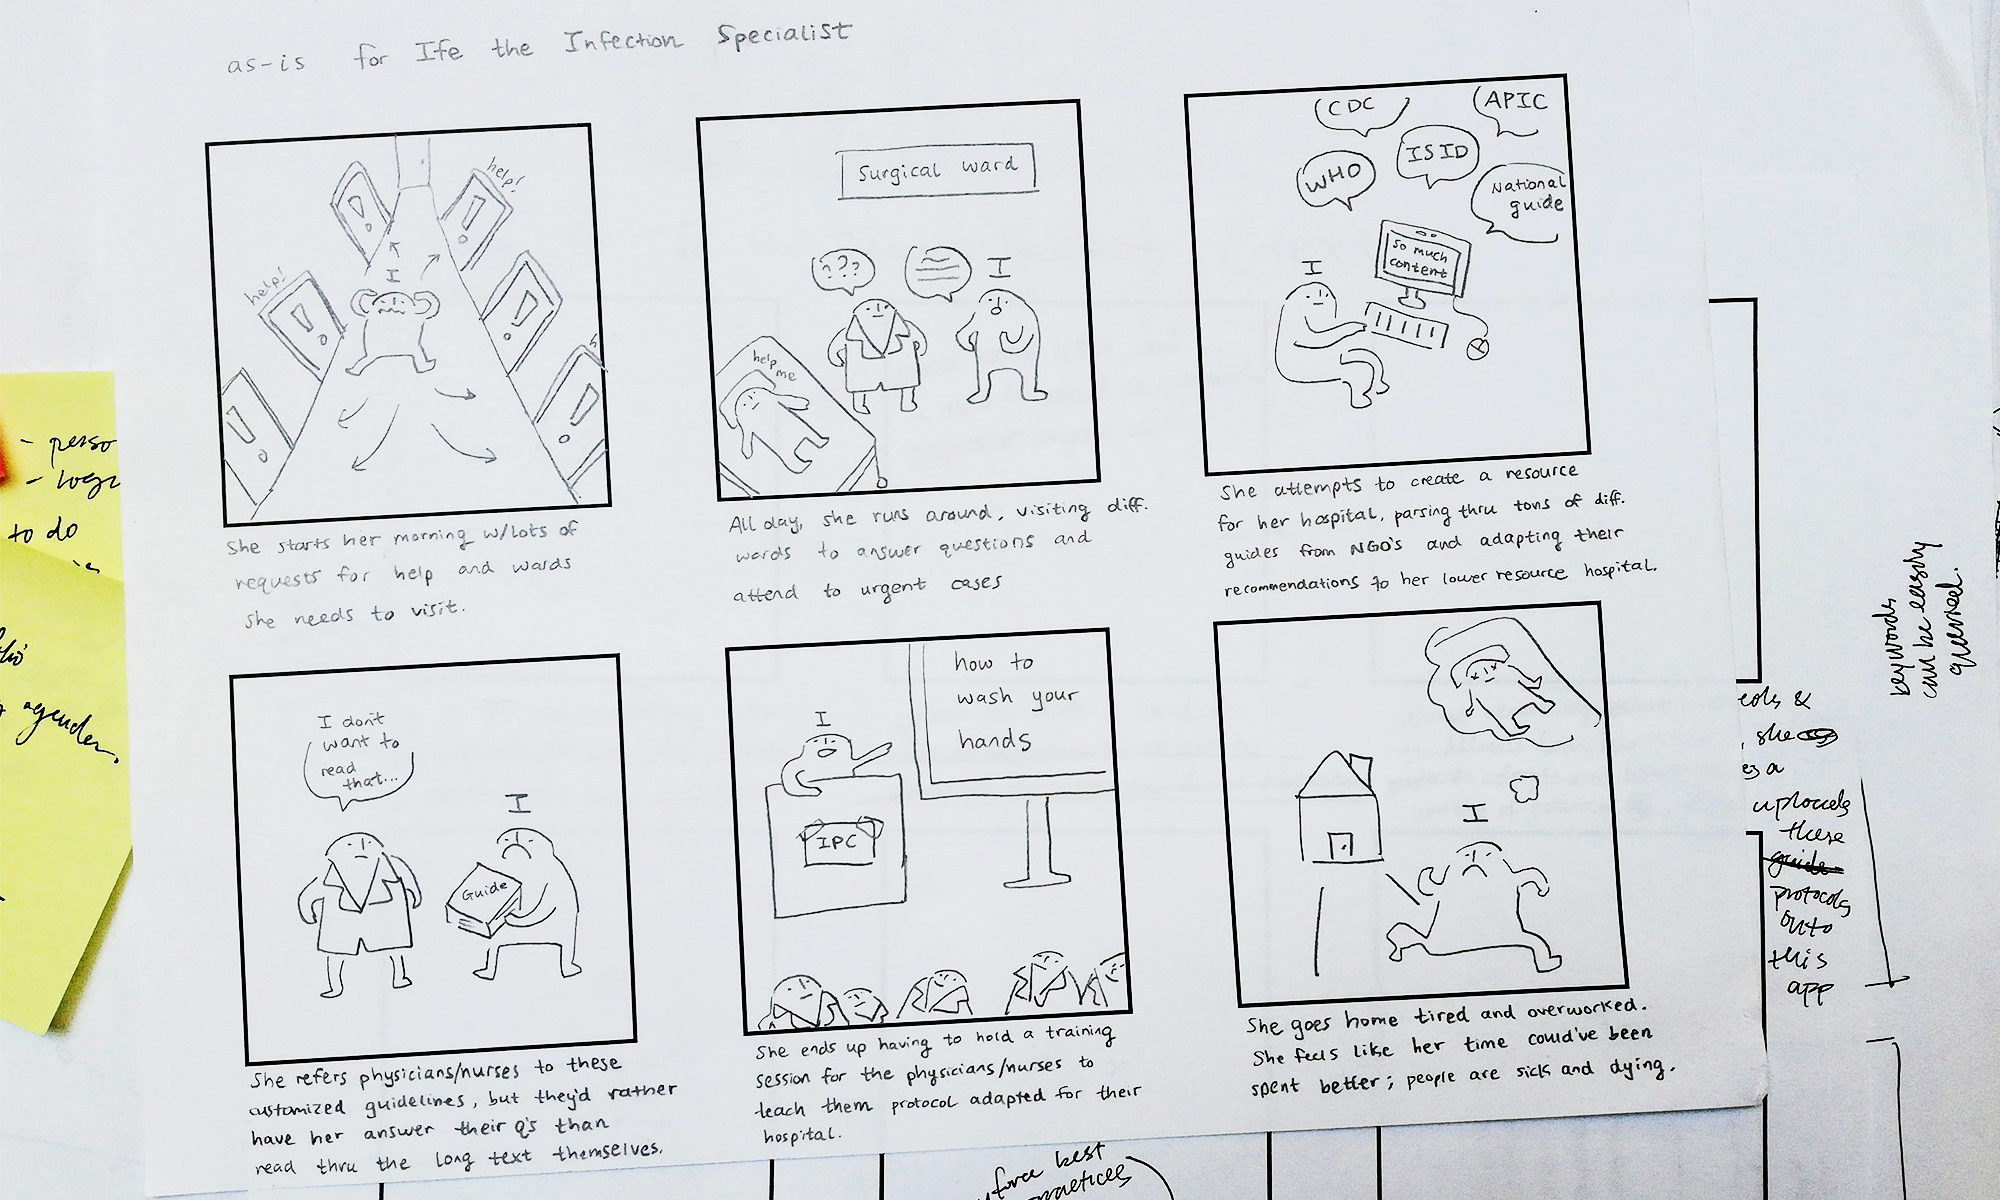 as-is for Ife the Infection Specialist
help!
help!
I
She starts her morning w/lots of
requests for help and wards
she needs to visit.
Surgical ward
???
I
help me
All day, she runs around, visiting diff.
wards to answer questions and
attend to urgent cases
CDC
APIC
WHO
ISID
National
guide
I
So much
content
She attempts to create a resource
for her hospital, parsing thru tons of diff.
guides from NGO's and adapting their
recommendations to her lower resource hospital.
I don't
want to
read
that...
I
Guide
She refers physicians/nurses to these
customized guidelines, but they'd rather
have her answer their Q's than
read thru the long text themselves.
how to
wash your
hands
I
IPC
She ends up having to hold a training
session for the physicians/nurses to
teach them protocol adapted for their
hospital.
I
She goes home tired and overworked.
She feels like her time could've been
spent better; people are sick and dying.
- perso
- logi
to do
agender.
keywords
can be easily
queried.
&
, she
es a
uploads
these
guide
protocols
onto
this
app
best
practices